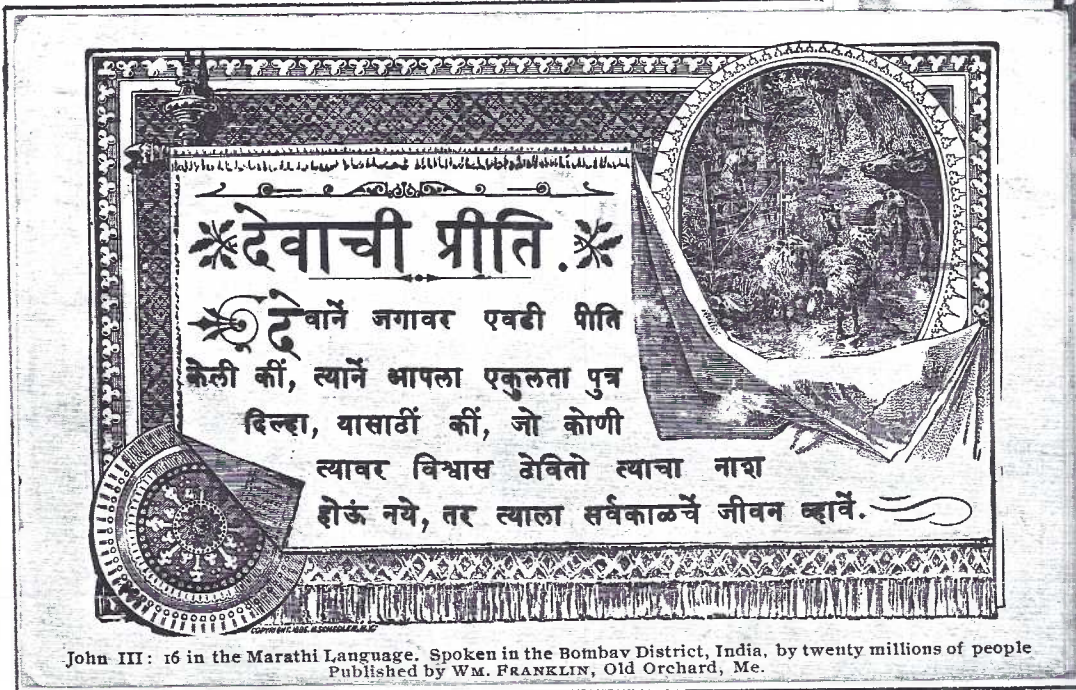 देवाची प्रीति.
देवानें जगावर एवढी प्रीति
केली कीं, त्यानें आपला एकुलता पुत्र
दिल्हा, यासाठीं कीं, जो कोणी
त्यावर विश्वास ठेवितो त्याचा नाश
होऊं नये, तर त्याला सर्वकाळचें जीवन व्हावें.
John III: 16 in the Marathi Language. Spoken in the Bombay District, India, by twenty millions of people
Published by WM. FRANKLIN, Old Orchard, Me.